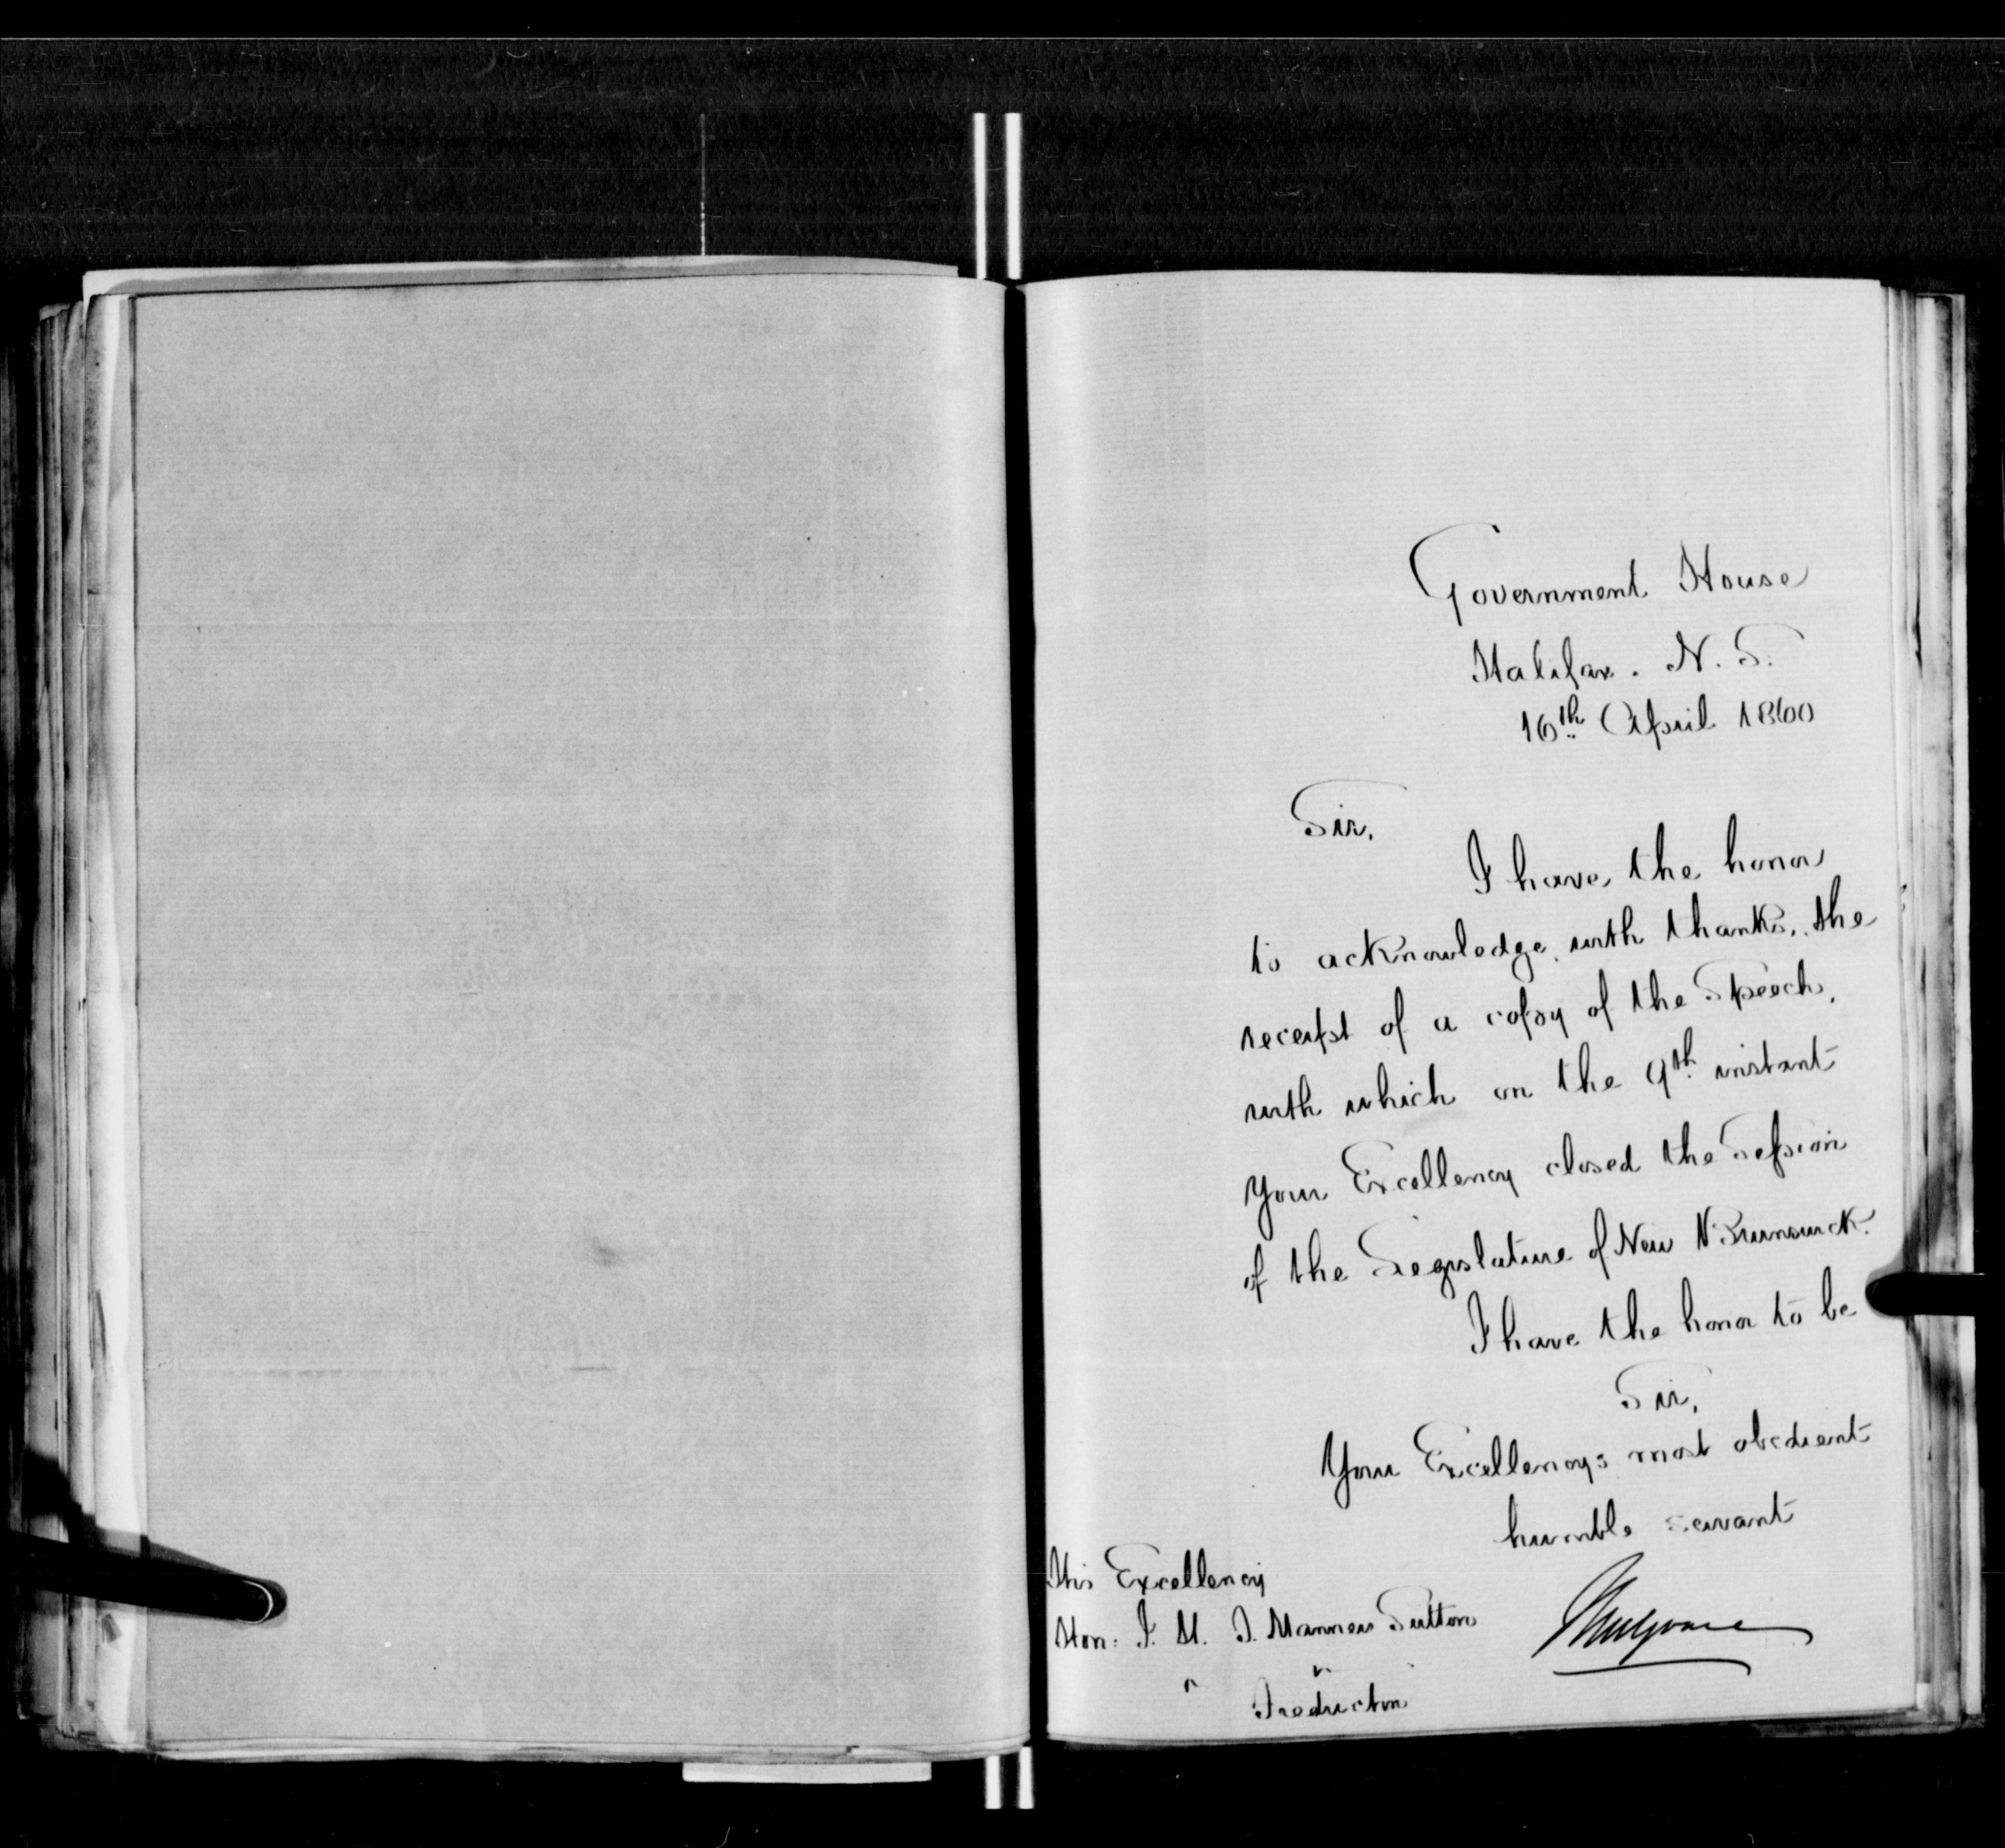 Government House
Halifax. N. S.
16th April 1860
Sir,
I have the honor
to acknowledge, with thanks, the
receipt of a copy of the Speech,
with which on the 9th instant
Your Excellency closed the Session
of the Legislature of New Brunswick.
I have the honor to be
Sir,
Your Excellencys most obedient
humble servant
Mulgrave
His Excellency
Hon: J. H. T. Manners Sutton
" "
Fredricton